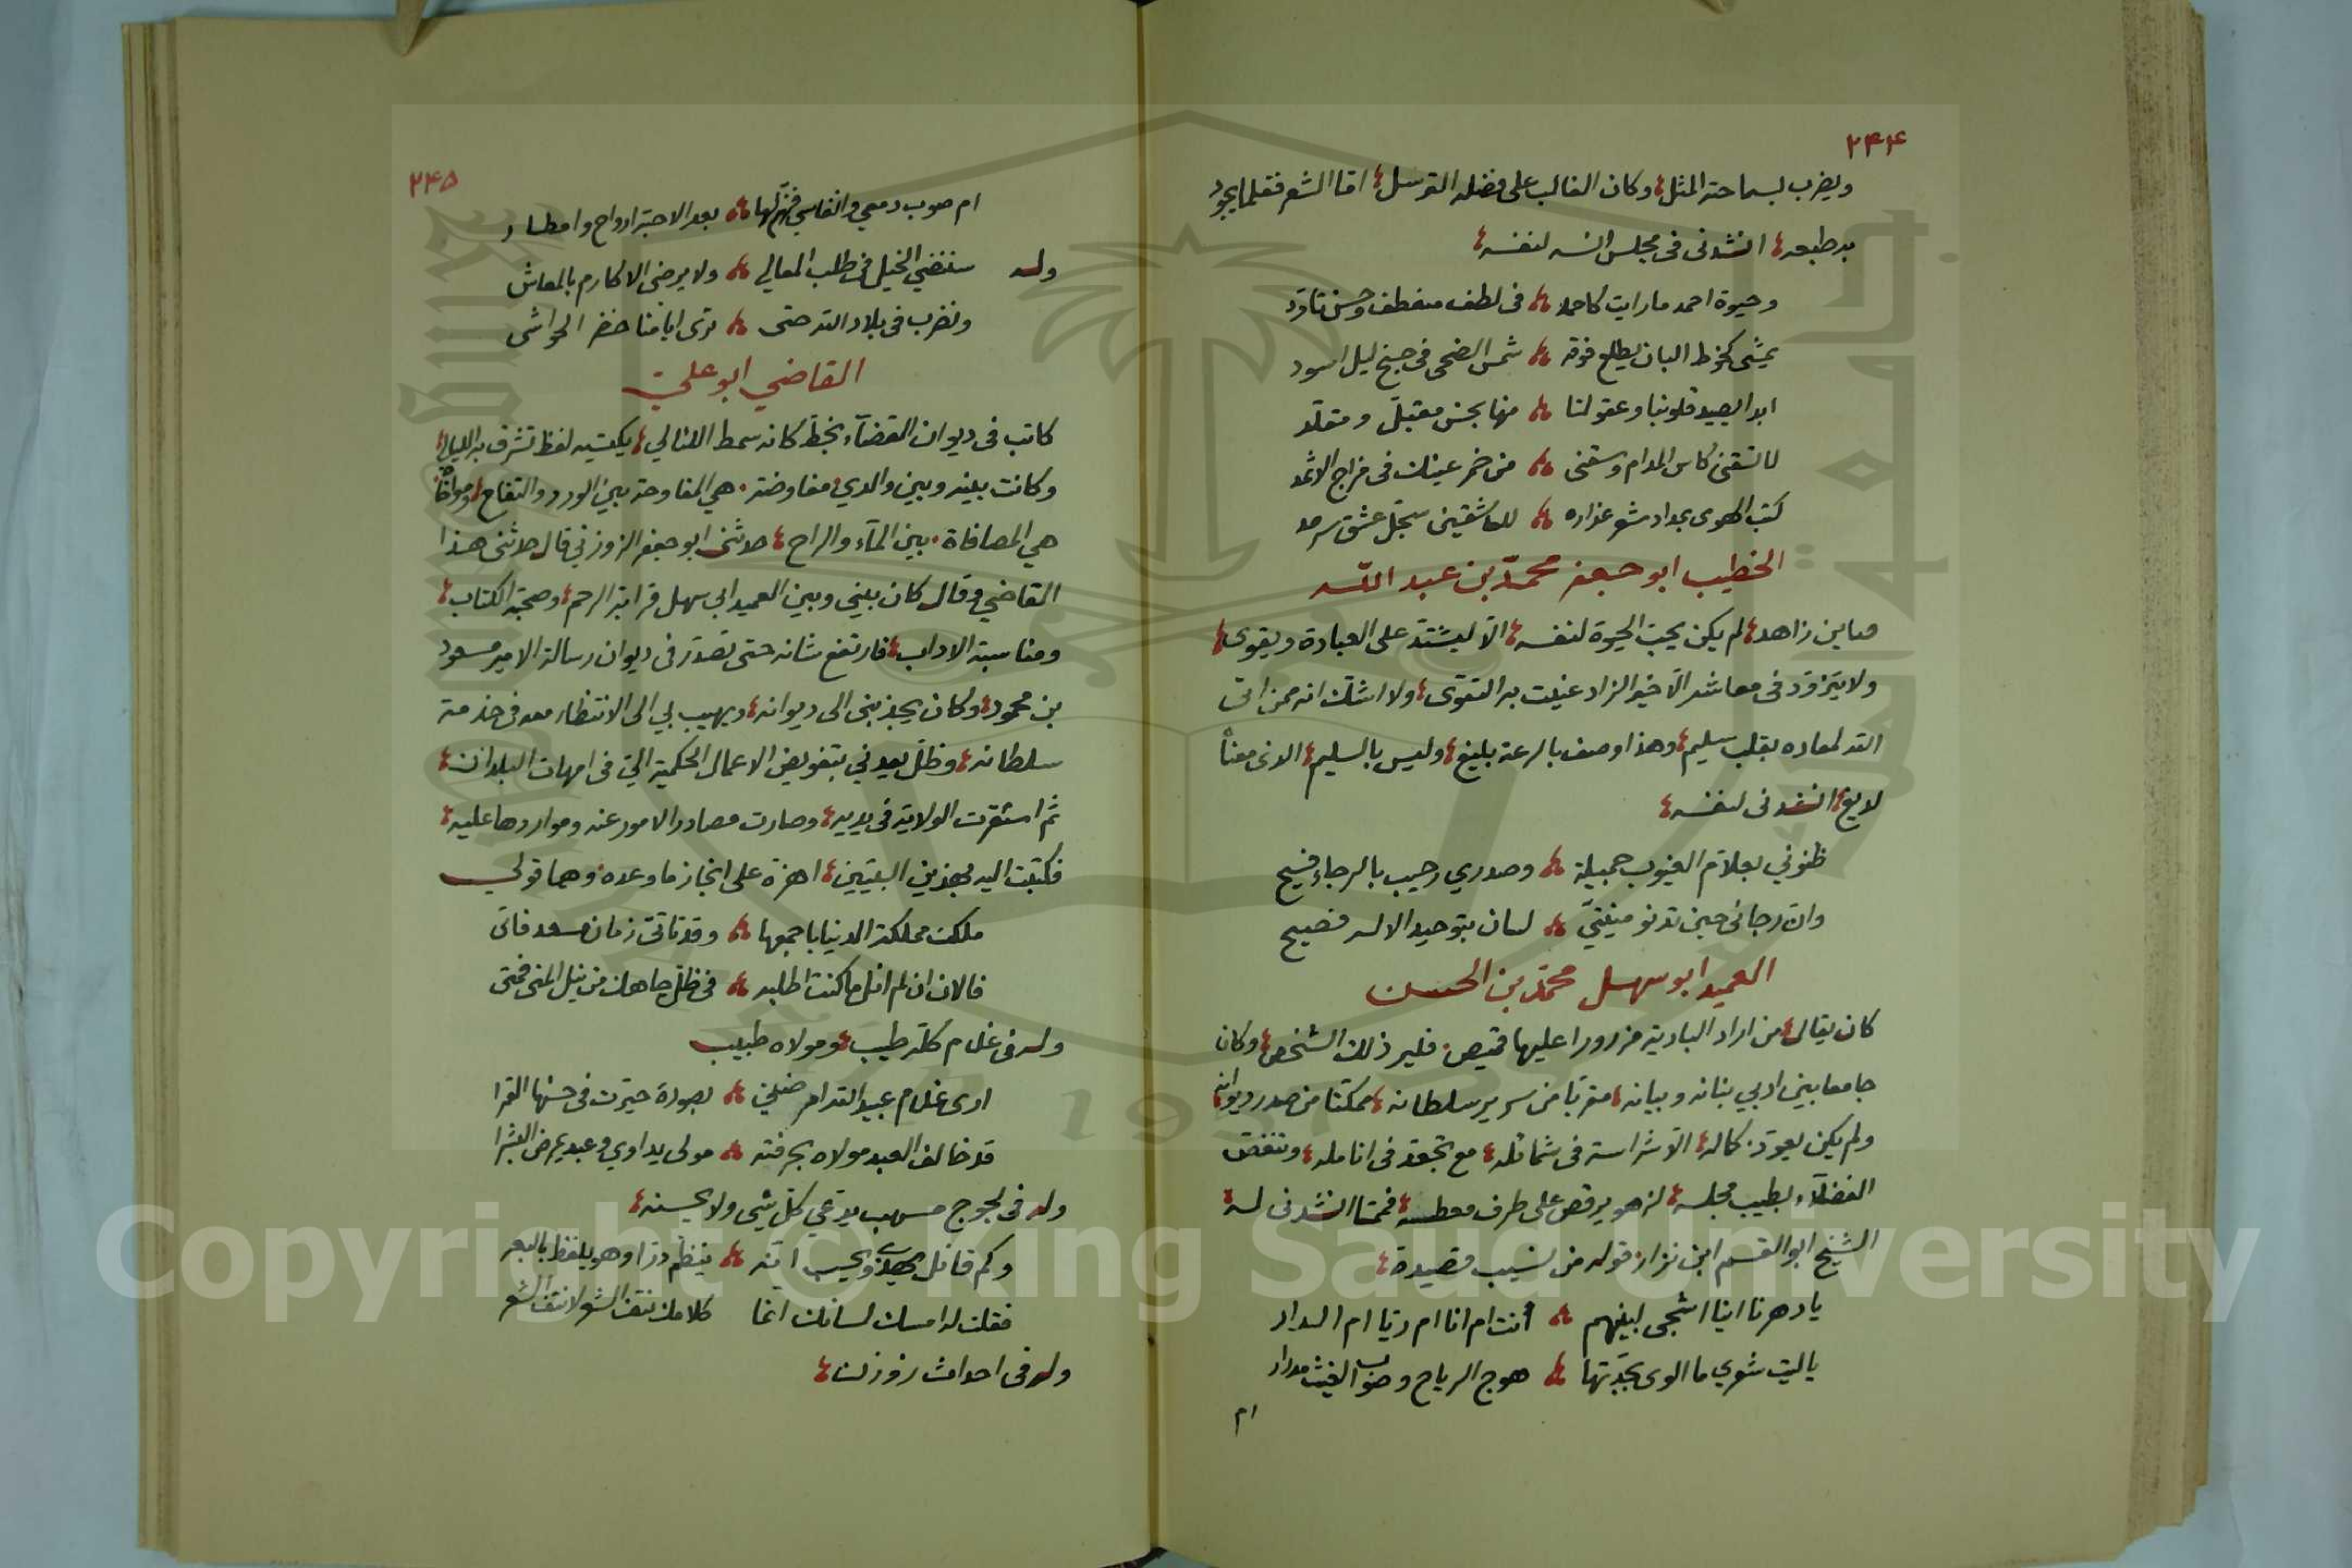 ٢٤٤
ويضرب بسماحته المثل وكان الغالب على فضله الترسل اما الشعر فقلما يجود
به طبعه انشدنى فى مجلس انسه لنفسه
وحيوة احمد ما رايت كاحمد فى لطف منعطف وحسن تاود
يمشى كخوط البان يطلع فوقه شمس الضحى فى جنح ليل اسود
ابدا يصيد قلوبنا وعقولنا منها بحسن مقبل ومقلد
لا تسقنى كاس المدام وسقنى من خمر عينك فى مزاج الاثمد
كتب الهوى بمداد شعر عذاره للعاشقين سجل عشق سرمد
الخطيب ابو جعفر محمد بن عبد الله
مباين زاهد لم يكن يحب الحيوة لنفسه الا ليشتد على العبادة ويقوى
ولا يتزود فى معاشه الا خير الزاد عنيت به التقوى ولا اشك انه ممن اتى
الله لمعاده بقلب سليم وهذا وصف بالرعة بليغ وليس بالسليم الذى معناه
لديغ انشدنى لنفسه
ظنوني بعلام الغيوب جميلة وصدري رحيب بالرجاء فسيح
وان رجائى حين تدنو منيتي لسان بتوحيد الاله فصيح
العميد ابو سهل محمد بن الحسن
كان يقال من اراد البادية مزرورا عليها قميص فلير ذلك الشخص وكان
جامعا بين ادبي بنانه وبيانه مقربا من سرير سلطانه ممكنا من صدر ديوانه
ولم يكن يعوذ كماله الا شراسة فى شمائله مع تجعد فى انامله وتنغص
الفضلاء بطيب مجلسه لزهو يرقص على طرف معطسه فمما انشدنى له
الشيخ ابو القسم ابن نزار قوله من نسيب قصيدة
يا دهرنا اينا اشجى لبينهم أنت ام انا ام ريا ام الدار
يا ليت شعري ما الوى بجدتها هوج الرياح وصوب الغيث مدرار
ام
٢٤٥
ام صوب دمعي وانفاسي فهن لها بعد الاحبة ارواح وامطار
وله سننضي الخيل فى طلب المعالي ولا يرضى الاكارم بالمعاش
ونضرب فى بلاد الله حتى نرى ايامنا خضر الحواشى
القاضي ابو علي
كاتب فى ديوان القضاء بخط كانه سمط اللئالي يكتسيه لفظ تشرق به الليالي
وكانت بينه وبين والدي مفاوضة هي المفاوحة بين الورد والتفاح ومصافاة
هي المصافاة بين الماء والراح حدثنى ابو جعفر الزوزني قال حدثنى هذا
القاضي وقال كان بيني وبين العميد ابى سهل قرابة الرحم وصحبة الكتاب
ومناسبة الاداب فارتفع شانه حتى تصدر فى ديوان رسالة الامير مسعود
بن محمود وكان يجذبنى الى ديوانه ويهيب بي الى الانتظار معه فى خدمة
سلطانه وظل يعدني بتفويض الاعمال الحكمية التي فى امهات البلدان
ثم استقرت الولاية فى يديه وصارت مصادر الامور عنه ومواردها عليه
فكتبت اليه بهذين البيتين اهزه على انجاز ما وعده وهما قولي
ملكت مملكة الدنيا باجمعها وقد تاتى زمان مسعد فاتى
فالان ان لم انل ما كنت اطلبه فى ظل جاهك من نيل المنى فمتى
وله فى غلام كله طيب ومولاه طبيب
ارى غلام عبيد الله امرضني بصورة حيرت فى حسنها القمرا
قد خالف العبد مولاه بحرفته مولى يداوي وعبد يمرض البشرا
وله فى لجوج مسهب يدعي كل شي ولا يحسنه
وكم قائل يهذى ويحسب انه ينظم درا وهو يلفظ بالبعر
فقلت له امسك لسانك انما كلامك نتف الشعر لا نتف الشعر
وله فى احداث زوزن
Copyright © King Saud University
1957